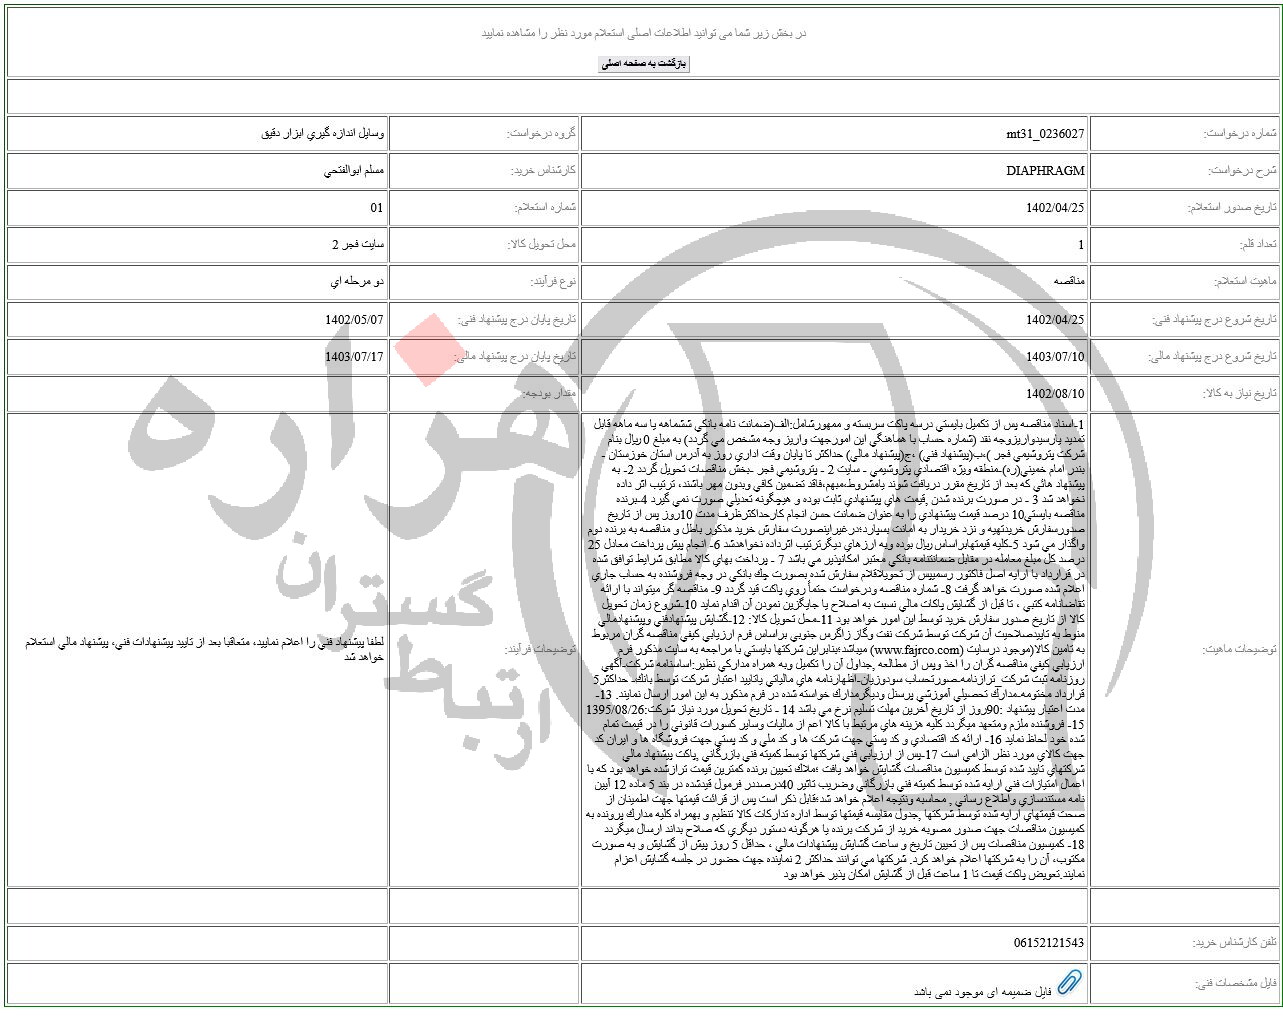 در بخش زیر شما می توانید اطلاعات اصلی استعلام مورد نظر را مشاهده نمایید
بازگشت به صفحه اصلی
شماره درخواست: mt31_0236027 گروه درخواست: وسایل اندازه گیري ابزار دقیق
شرح درخواست: DIAPHRAGM کارشناس خرید: مسلم ابوالفتحي
تاریخ صدور استعلام: 1402/04/25 شماره استعلام: 01
تعداد قلم: 1 محل تحویل کالا: سایت فجر 2
ماهیت استعلام: مناقصه نوع فرآیند: دو مرحله اي
تاریخ شروع درج پیشنهاد فنی: 1402/04/25 تاریخ پایان درج پیشنهاد فنی: 1402/05/07
تاریخ شروع درج پیشنهاد مالی: 1403/07/10 تاریخ پایان درج پیشنهاد مالی: 1403/07/17
تاریخ نیاز به کالا: 1402/08/10 مقدار بودجه:
1-اسناد مناقصه پس از تکمیل بایستي درسه پاکت سربسته و ممهورشامل:الف(ضمانت نامه بانکي ششماهه یا سه ماهه قابل
تمدید یارسیدواریزوجه نقد (شماره حساب با هماهنگي این امورجهت واریز وجه مشخص مي گردد) به مبلغ 0 ریال بنام
شرکت پتروشیمي فجر )،ب(پیشنهاد فني) ،ج(پیشنهاد مالي) حداکثر تا پایان وقت اداري روز به آدرس استان خوزستان -
بندر امام خمیني(ره)-منطقه ویژه اقتصادي پتروشیمي - سایت 2 - پتروشیمي فجر -بخش مناقصات تحویل گردد 2- به
پیشنهاد هائي که بعد از تاریخ مقرر دریافت شوند یامشروط،مبهم،فاقد تضمین کافي وبدون مهر باشند، ترتیب اثر داده
نخواهد شد 3 - در صورت برنده شدن ,قیمت هاي پیشنهادي ثابت بوده و هیچگونه تعدیلي صورت نمي گیرد 4-برنده
مناقصه بایستي10 درصد قیمت پیشنهادي را به عنوان ضمانت حسن انجام کارحداکثرظرف مدت 10روز پس از تاریخ
صدورسفارش خریدتهیه و نزد خریدار به امانت بسپارد؛درغیراینصورت سفارش خرید مذکور باطل و مناقصه به برنده دوم
واگذار مي شود 5-کلیه قیمتهابراساس ریال بوده وبه ارزهاي دیگرترتیب اثرداده نخواهدشد 6- انجام پیش پرداخت معادل 25
درصد کل مبلغ معامله در مقابل ضمانتنامه بانکي معتبر امکانپذیر مي باشد 7 - پرداخت بهاي کالا مطابق شرایط توافق شده
در قرارداد با ارایه اصل فاکتور رسمیپس از تحویلاقلام سفارش شده بصورت چك بانکي در وجه فروشنده به حساب جاري
اعلام شده صورت خواهد گرفت 8- شماره مناقصه ودرخواست حتمأ روي پاکت قید گردد 9- مناقصه گر میتواند با ارائه
تقاضانامه کتبي ، تا قبل از گشایش پاکات مالي نسبت به اصلاح یا جایگزین نمودن آن اقدام نماید 10-شروع زمان تحویل
کالا از تاریخ صدور سفارش خرید توسط این امور خواهد بود 11-محل تحویل کالا: 12-گشایش پیشنهادفني وپیشنهادمالي
منوط به تاییدصلاحیت آن شرکت توسط شرکت نفت وگاز زاگرس جنوبي براساس فرم ارزیابي کیفي مناقصه گران مربوط
به تامین کالا(موجود درسایت (www.fajrco.com) میباشد؛بنابراین شرکتها بایستي با مراجعه به سایت مذکور فرم
ارزیابي کیفي مناقصه گران را اخذ وپس از مطالعه ,جداول آن را تکمیل وبه همراه مدارکي نظیر:اساسنامه شرکت-آگهي
روزنامه ثبت شرکت_ترازنامه-صورتحساب سودوزیان-اظهارنامه هاي مالیاتي یاتایید اعتبار شرکت توسط بانك- حداکثر5
قرارداد مختومه-مدارك تحصیلي آموزشي پرسنل ودیگرمدارك خواسته شده در فرم مذکور به این امور ارسال نمایند. 13-
مدت اعتبار پیشنهاد :90روز از تاریخ آخرین مهلت تسلیم نرخ مي باشد 14 - تاریخ تحویل مورد نیاز شرکت:1395/08/26
15- فروشنده ملزم ومتعهد میگردد کلیه هزینه هاي مرتبط با کالا اعم از مالیات وسایر کسورات قانوني را در قیمت تمام
شده خود لحاظ نماید 16- ارائه کد اقتصادي و کد پستي جهت شرکت ها و کد ملي و کد پستي جهت فروشگاه ها و ایران کد
جهت کالاي مورد نظر الزامي است 17-پس از ارزیابي فني شرکتها توسط کمیته فني بازرگاني ,پاکت پیشنهاد مالي
شرکتهاي تایید شده توسط کمیسیون مناقصات گشایش خواهد یافت ؛ملاك تعیین برنده کمترین قیمت ترازشده خواهد بود که با
اعمال امتیازات فني ارایه شده توسط کمیته فني بازرگاني وضریب تاثیر 40درصددر فرمول قیدشده در بند 5 ماده 12 آیین
نامه مستندسازي واطلاع رساني , محاسبه ونتیجه اعلام خواهد شد؛قابل ذکر است پس از قرائت قیمتها جهت اطمینان از
صحت قیمتهاي ارایه شده توسط شرکتها ,جدول مقایسه قیمتها توسط اداره تدارکات کالا تنظیم و بهمراه کلیه مدارك پرونده به
کمیسیون مناقصات جهت صدور مصوبه خرید از شرکت برنده یا هرگونه دستور دیگري که صلاح بداند ارسال میگردد
18- کمیسیون مناقصات پس از تعیین تاریخ و ساعت گشایش پیشنهادات مالي ، حداقل 5 روز پیش از گشایش و به صورت
مکتوب، آن را به شرکتها اعلام خواهد کرد. شرکتها مي توانند حداکثر 2 نماینده جهت حضور در جلسه گشایش اعزام
نمایند.تعویض پاکت قیمت تا 1 ساعت قبل از گشایش امکان پذیر خواهد بود
توضیحات ماهیت:
توضیحات فرآیند:
لطفا پیشنهاد فني را اعلام نمایید، متعاقبا بعد از تایید پیشنهادات فني، پیشنهاد مالي استعلام
خواهد شد
تلفن کارشناس خرید: 06152121543
فایل مشخصات فنی: فایل ضمیمه ای موجود نمی باشد
هزاره
گستران
ارتباط